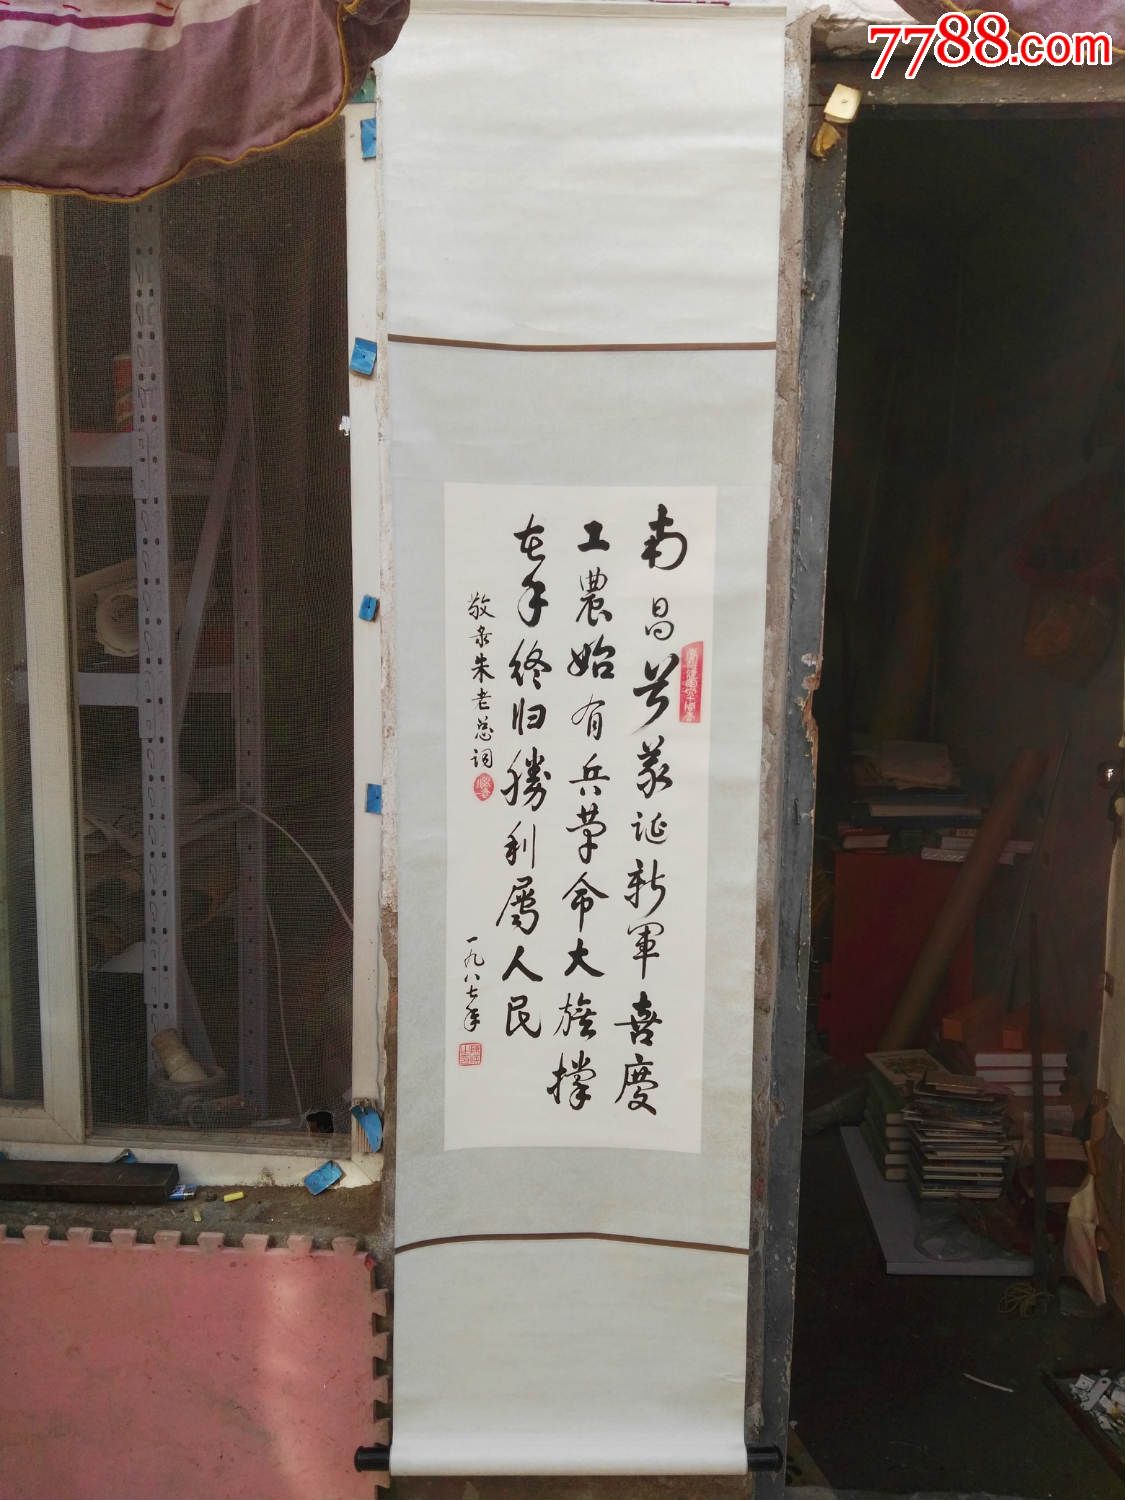 7788.com
南昌首義诞新軍喜慶
工農始有兵革命大旗撑
在手终归勝利屬人民
敬录朱老总词
一九八七年